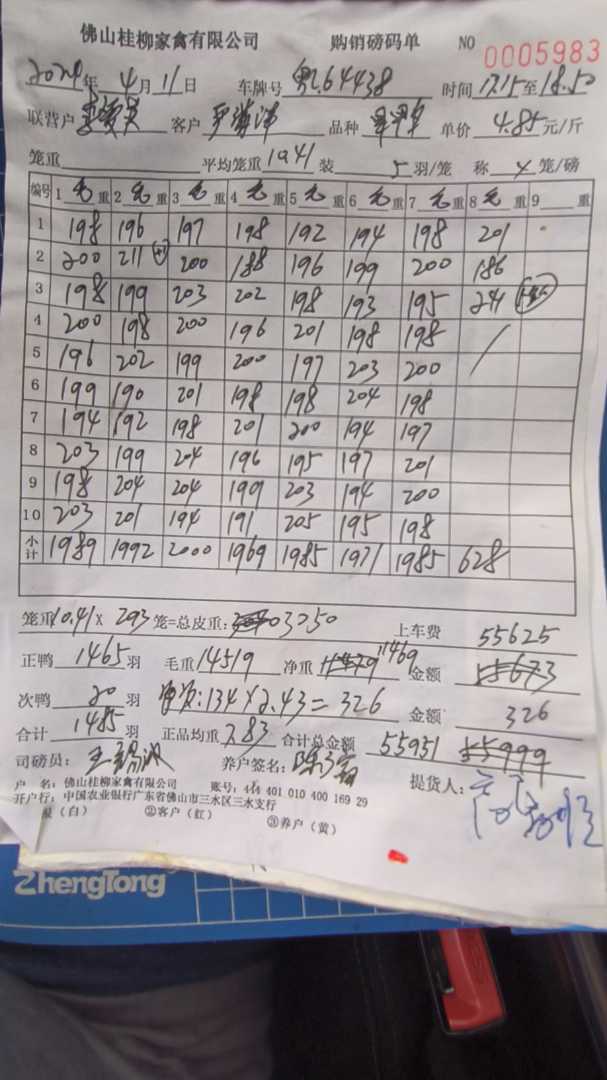 佛山桂柳家禽有限公司 购销磅码单 NO 0005983
2024年 4月 11日 车牌号 粤L64438 时间 17.15至18.50
联营户 客户 品种 单价 4.85 元/斤
笼重 平均笼重 1041 装 5 羽/笼 称 4 笼/磅
编号 1 毛 重 2 毛 重 3 毛 重 4 毛 重 5 毛 重 6 毛 重 7 毛 重 8 毛 重 9 重
1 198 196 197 198 192 194 198 201
2 200 211 200 188 196 199 200 186
3 198 199 203 202 198 193 195 241
4 200 198 200 196 201 198 198
5 196 202 199 200 197 203 200
6 199 190 201 198 198 204 198
7 194 192 198 201 200 194 197
8 203 199 204 196 195 197 201
9 198 204 204 199 203 194 200
10 203 201 194 191 205 195 198
小计 1989 1992 2000 1969 1985 1971 1985 628
笼重 10.41 x 293 笼=总皮重: 3050 上车费 55625
正鸭 1465 羽 毛重 14519 净重 11469 金额 55673
次鸭 20 羽 134 x 2.43 = 326 金额 326
合计 1485 羽 正品均重 7.83 合计总金额 55951 55999
司磅员: 养户签名: 提货人:
户 名: 佛山桂柳家禽有限公司 账号: 444 401 010 400 169 29
开户行: 中国农业银行广东省佛山市三水区三水支行
(白) ②客户(红) ③养户(黄)
ZhengTong